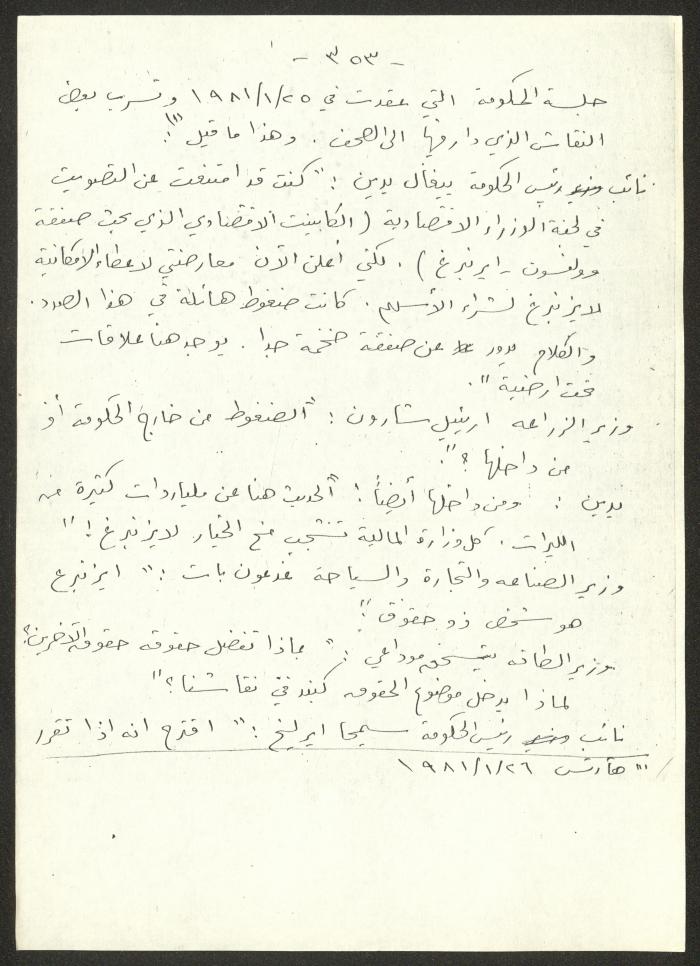 - ٣٥٣ -
جلسة الحكومة التي عقدت في ١٩٨١/١/٢٥ وتسرب بعض
النقاش الذي دار فيها الى الصحف . وهذا ما قيل "١" :
نائب رئيس الحكومة ييغال يدين : " كنت قد امتنعت عن التصويت
في لجنة الوزراء الاقتصادية ( الكابينت الاقتصادي الذي بحث صفقة
وولفسون - ايزنبرغ ) . لكني أعلن الآن معارضتي لاعطاء الامكانية
لايزنبرغ لشراء الأسهم . كانت ضغوط هائلة في هذا الصدد .
والكلام يدور عن صفقة ضخمة جدا . يوجد هنا علاقات
تحت ارضية " .
وزير الزراعه اريئيل شارون : " الضغوط من خارج الحكومة أو
من داخلها ؟ " .
يدين : ومن داخلها أيضاً ! " الحديث هنا عن مليارات كثيرة من
الليرات . كل وزارة المالية تشجب منح الخيار لايزنبرغ ! "
وزير الصناعه والتجارة والسياحة غدعون بات : " ايزنبرغ
هو شخص ذو حقوق " .
وزير الطاقه يتسحق موداعي : " بماذا تفضل حقوقه حقوق الآخرين ؟
لماذا يدخل موضوع الحقوق كبند في نقاشنا ؟ "
نائب رئيس الحكومة سيمحا ايرليخ : " اقترح انه اذا تقرر
"١" هآرتس ١٩٨١/١/٢٦